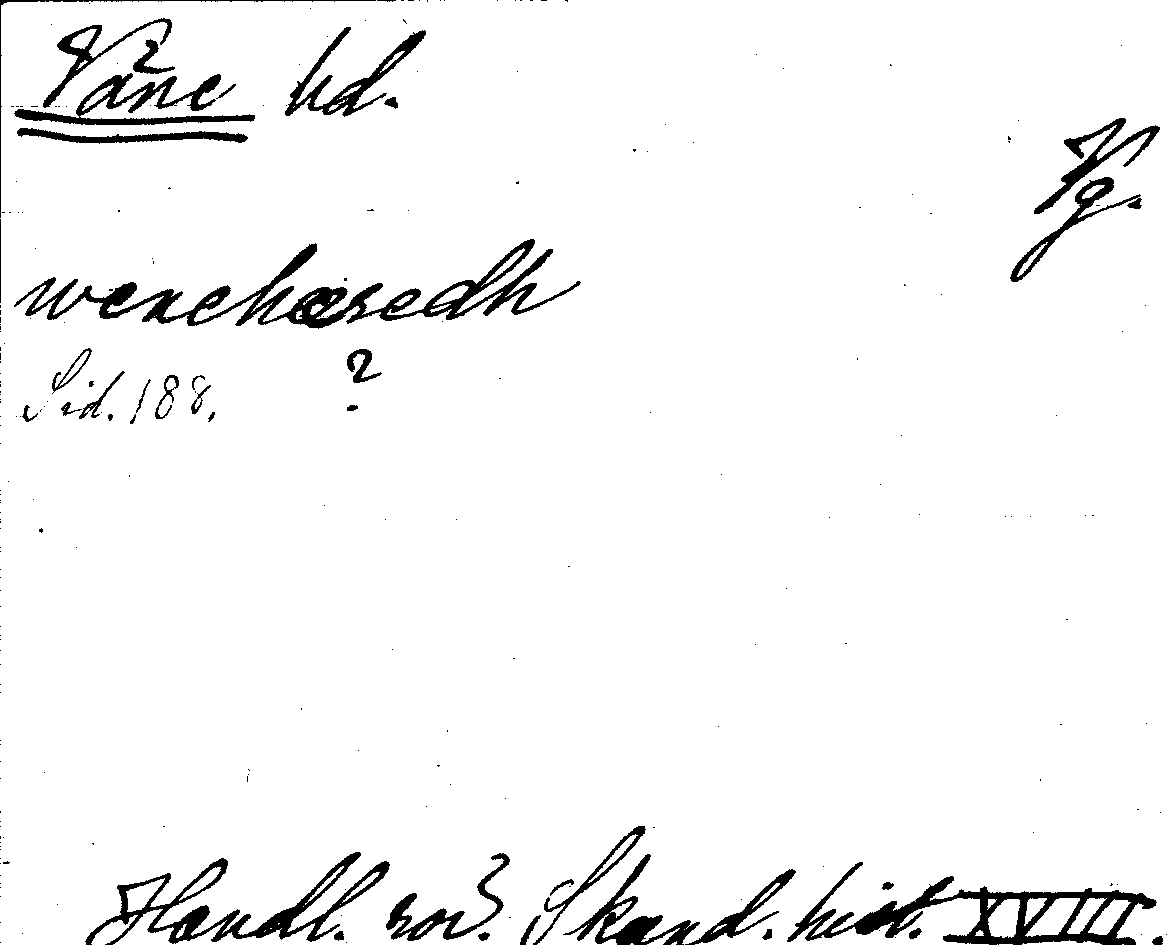 Våne hd.
Vg.
wenehæredh
?
Sid. 188.
Handl. rör. Skand. hist. XVIII.